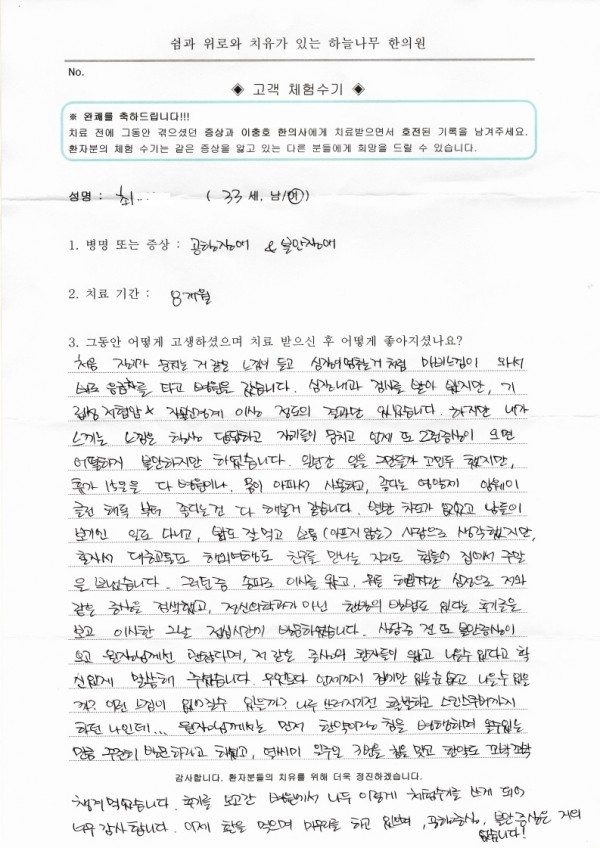 쉼과 위로와 치유가 있는 하늘나무 한의원
No.
◈ 고객 체험수기 ◈
※ 완쾌를 축하드립니다!!!
치료 전에 그동안 겪으셨던 증상과 이충호 한의사에게 치료받으면서 호전된 기록을 남겨주세요.
환자분의 체험 수기는 같은 증상을 앓고 있는 다른 분들에게 희망을 드릴 수 있습니다.
성명 : 최 ( 33 세, 남/여)
1. 병명 또는 증상 : 공황장애 & 불안장애
2. 치료 기간 : 8개월
3. 그동안 어떻게 고생하셨으며 치료 받으신 후 어떻게 좋아지셨나요?
처음 뭉치는 거 같은 느낌이 들고 심장이 멈추는거 처럼 마비느낌이 와서
바로 응급차를 타고 병원을 갔습니다. 심장내과 검사를 받아 봤지만, 기
립성 저혈압 자율신경계 이상 정도의 결과만 있었습니다. 하지만 내가
느끼는 느낌은 항상 답답하고 뭉치고 언제 또 그런증상이 오면
어떡하지 불안하지만 하였습니다. 일년간 일을 그만둘까 고민도 했지만,
휴가 15일을 다 병원이나, 몸이 아파서 사용하고, 좋다는 영양제
부터 좋다는건 다 해본거 같습니다. 없었고 남들이
보기엔 일도 다니고, 밥도 잘 먹고 (아프지 않는) 사람으로 생각했지만,
혼자서 대중교통도 해외여행도 친구를 만나는 자리도 힘들어 집에서 주말
을 보냈습니다. 그러던중 송파로 이사를 왔고, 심정으로 저와
같은 증상을 검색했고, 정신의학과가 아닌 한방의 방법도 있다는 후기글을
보고 이사한 그날 점심시간에 방문하였습니다. 상담중 전 또 불안증상이
오고 원장님께선 괜찮다며, 저 같은 증상의 환자들이 왔고 나을수 있다고 확
신있게 말씀해 주셨습니다. 무엇보다 언제까지 집에만 있을순 없고 나을수 있을
까? 이런 느낌이 없어질수 있을까? 나도 쓰러지기전 활발하고 스킨스쿠버까지
하던 나인데... 원장님께서는 먼저 한약이랑 침을 병행하며 올수있는
만큼 꾸준히 방문하라고 하셨고, 열심히 일주일 3번을 침을 맞고 한약도 꼬박꼬박
감사합니다. 환자분들의 치유를 위해 더욱 정진하겠습니다.
챙겨 먹었습니다. 후기를 보고간 병원에서 나도 이렇게 체험수기를 쓰게 되어
너무 감사합니다. 이제 환을 먹으며 마무리를 하고 있으며, 공황증상, 불안증상은 거의
없습니다!